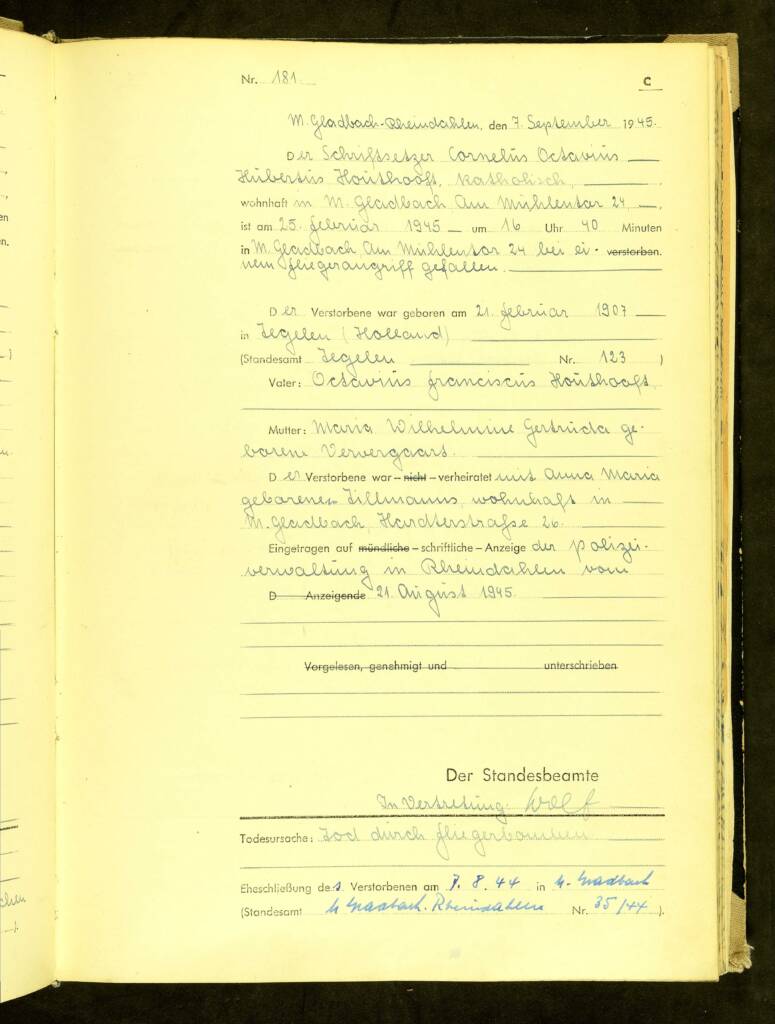 en
n.
chen
Nr. 181. C
M. Gladbach-Rheindahlen, den 7. September 1945.
Der Schriftsetzer Cornelus Octavius
Hubertus Houthooft, katholisch,
wohnhaft in M. Gladbach Am Mühlentor 24,
ist am 25. Februar 1945 um 16 Uhr 40 Minuten
in M. Gladbach, Am Mühlentor 24 bei ei- verstorben.
nem Fliegerangriff gefallen.
Der Verstorbene war geboren am 21. Februar 1907
in Tegelen (Holland)
(Standesamt Tegelen Nr. 123 )
Vater: Octavius Franciscus Houthooft,
Mutter: Maria Wilhelmine Gertruda ge-
borene Ververgaart.
Der Verstorbene war – nicht – verheiratet mit Anna Maria
geborenen Tillmanns, wohnhaft in
M. Gladbach, Hardterstraße 26.
Eingetragen auf mündliche – schriftliche – Anzeige der Polizei-
verwaltung in Rheindahlen vom
D Anzeigende 21. August 1945.
Vorgelesen, genehmigt und unterschrieben
Der Standesbeamte
In Vertretung: Wolf
Todesursache: Tod durch Fliegerbomben
Eheschließung des Verstorbenen am 7. 8. 44 in M. Gladbach
(Standesamt M Gladbach. Rheindahlen Nr. 35/44 ).